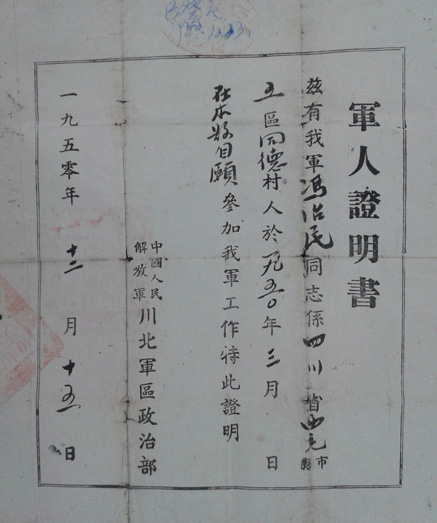 軍人證明書
茲有我軍馮治民同志係四川省西充市縣
五區同德村人於一九五〇年三月 日
在本縣自願參加我軍工作特此證明
中國人民解放軍川北軍區政治部
一九五零年 十二 月 十五 日